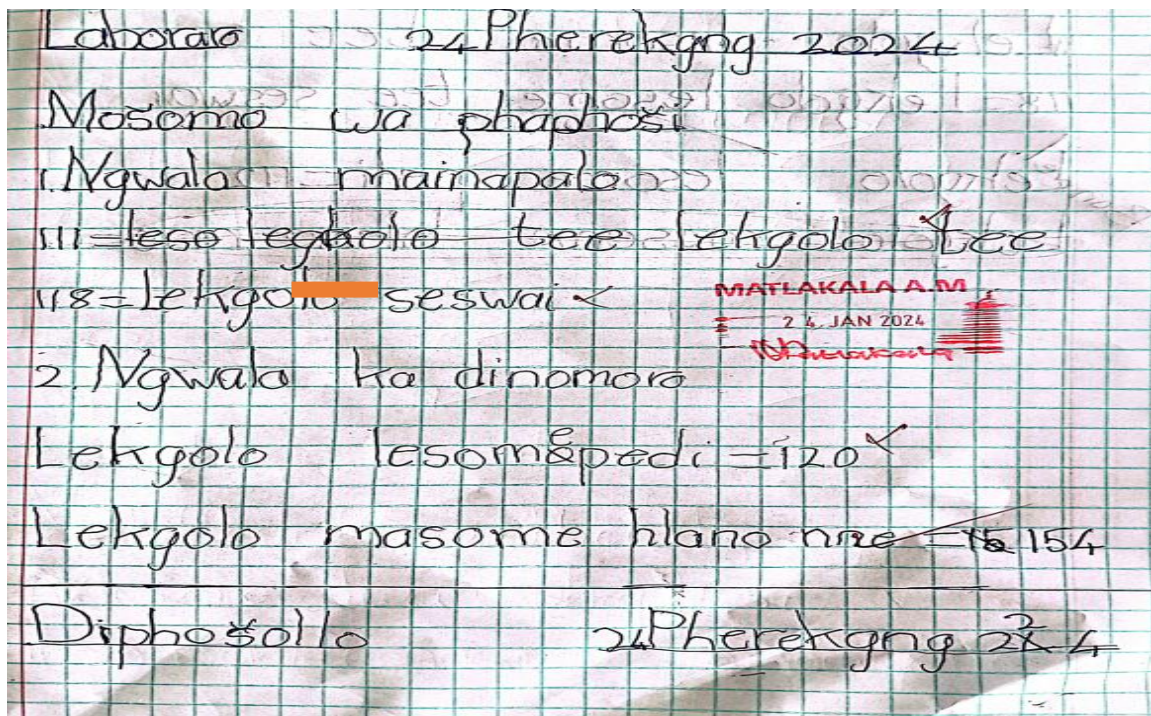 Laboraro 24 Pherekgng 2024
Mošomo wa phaphoši
1. Ngwala mainapalo
111 = leso legholo tee lekgolo tee
118 = Lekgolo seswai
MATLAKALA A.M
24 JAN 2024
2. Ngwala ka dinomoro
Lekgolo lesomepedi = 120
Lekgolo masome hlano nne = 154
Diphošollo 24 Pherekgng